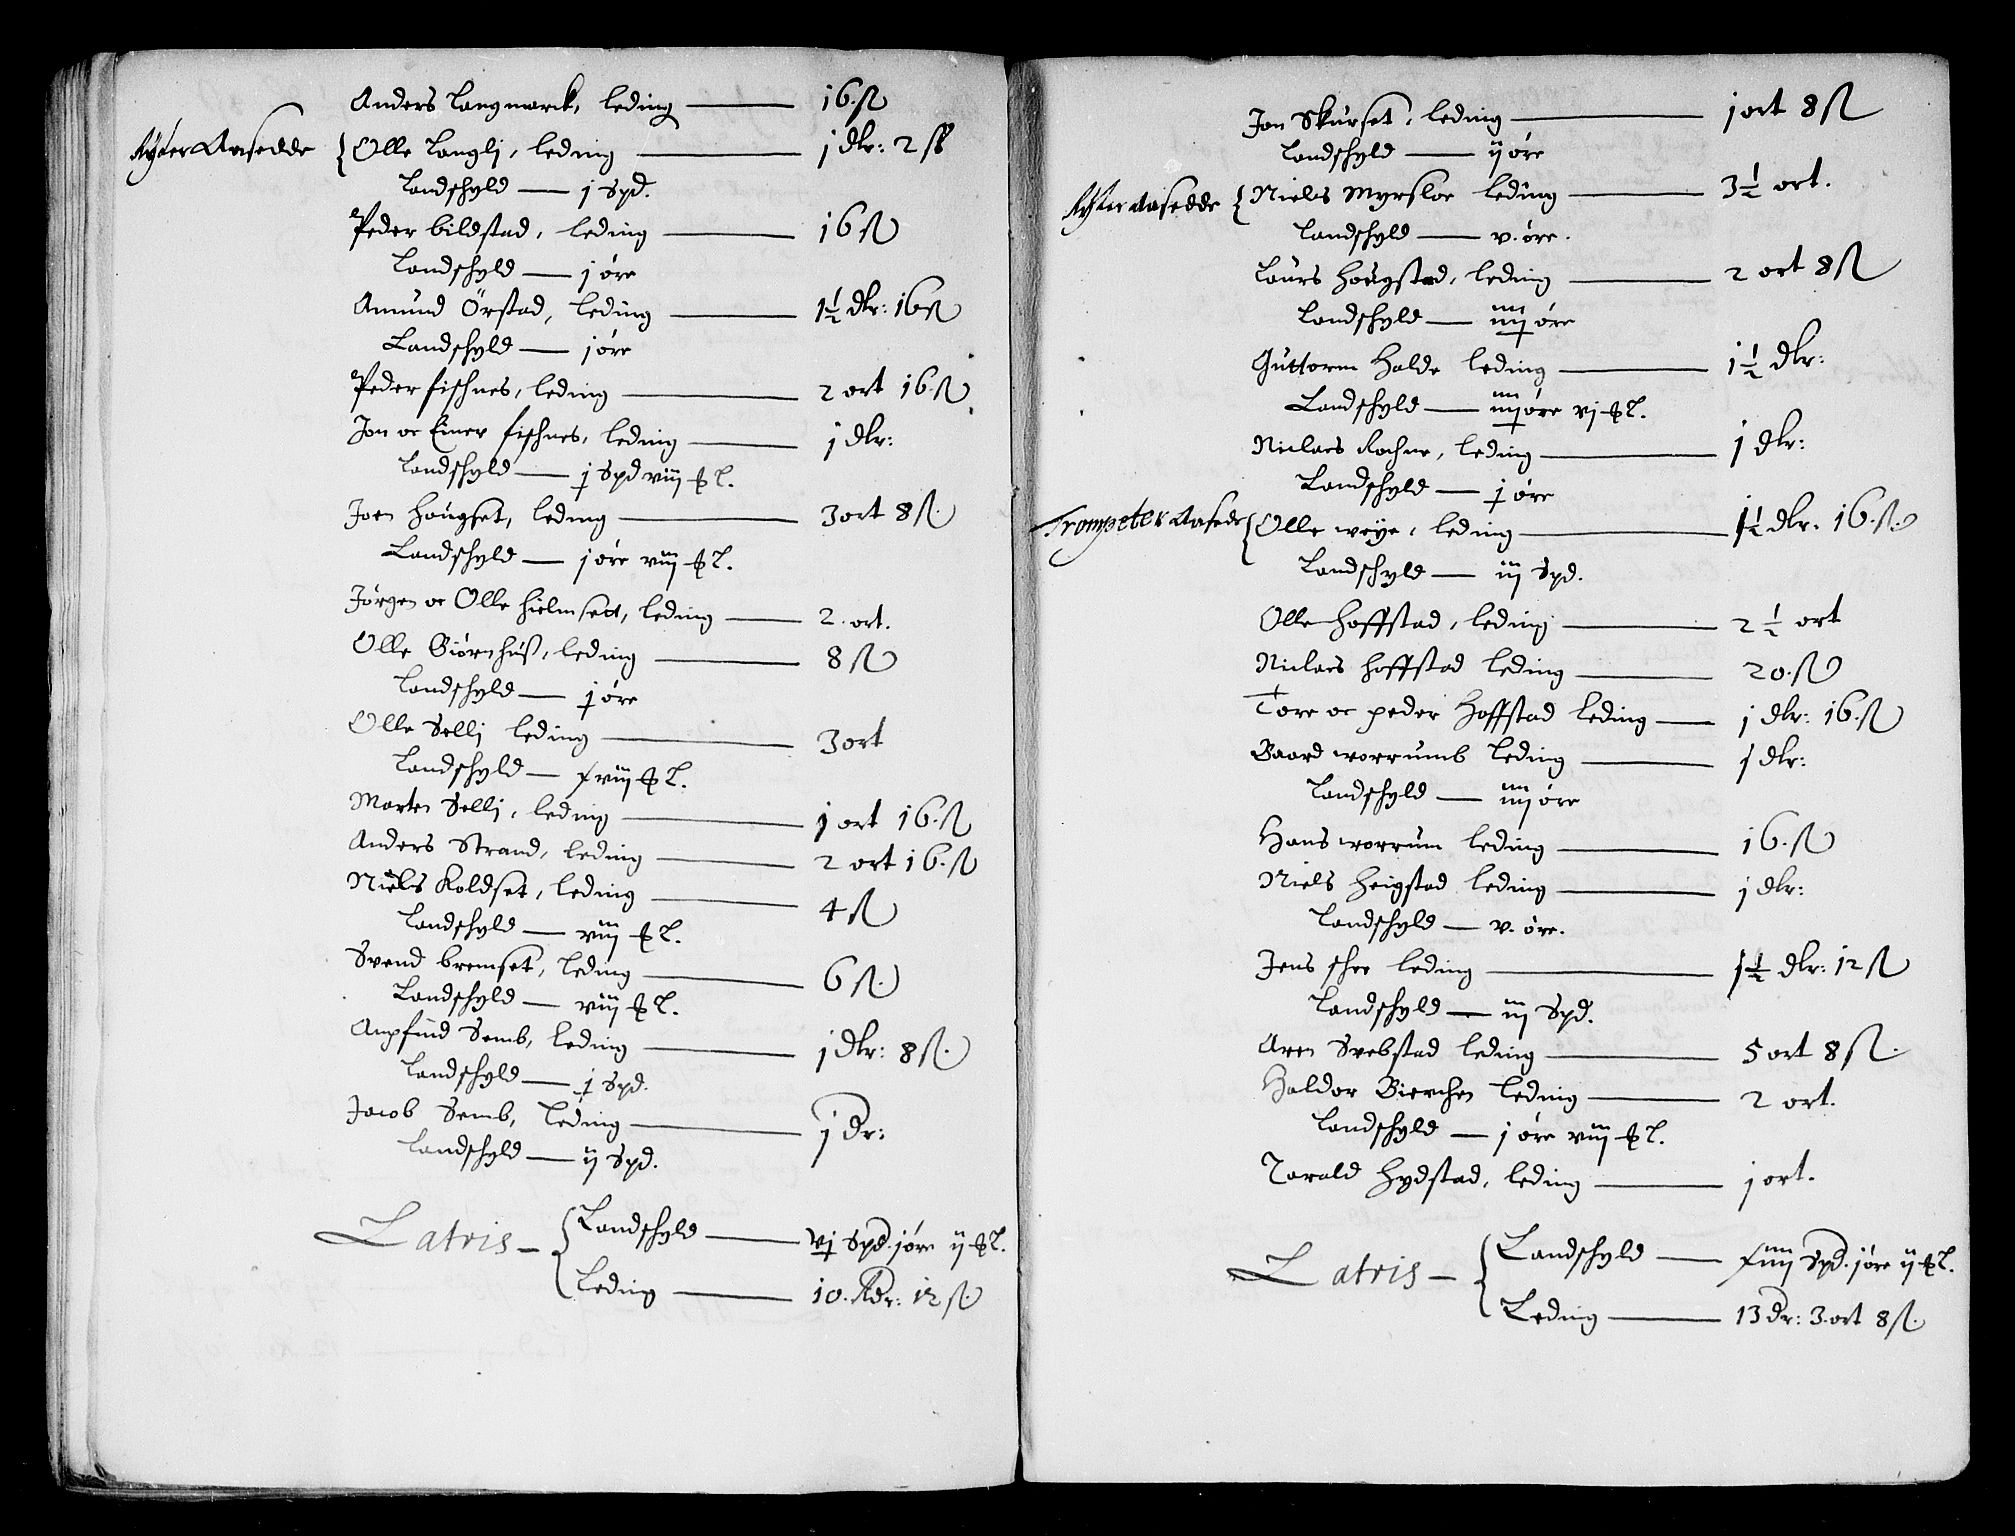 Anders Langmarck, leding — 16 ß
Ryter Aasedde { Olle Langlj, leding — j dlr: 2 ß
Landschyld — j Spd.
Peder bildstad, leding — 16 ß
Landschyld — j øre
Amund Örstad, leding — 1½ dlr: 16 ß
Landschyld — j øre
Peder fischnes, leding — 2 ort 16 ß
Jon oc Einer fischnes, leding — j dlr:
Landschyld — j Spd viij ꝥ l.
Joen Hougset, leding — 3 ort 8 ß.
Landschyld — j øre viij ꝥ l.
Jörgen oc Olle hielmsett, leding — 2. ort.
Olle Giörnhuß, leding — 8 ß
Landschyld — j øre
Olle Sellj leding — 3 ort
Landschyld — xviij ꝥ l.
Morten Sellj, leding — j ort 16 ß
Anders Strand, leding — 2 ort 16 ß
Niels Koldset, leding — 4 ß
Landschyld — viij ꝥ l.
Svend bremset, leding — 6 ß.
Landschyld — viij ꝥ l.
Anpfind Semb, leding — j dlr: 8 ß.
Landschyld — j Spd.
Jacob Semb, leding — j Dr:
Landschyld — ij Spd.
Latris — { Landschyld — vj Spd. j øre ij ꝥ l.
Leding — 10. Rdr: 12 ß.
Jon Skurset, leding — j ort 8 ß
Landschyld — ij øre
Ryter aasedde { Niels Myrsloe leding — 3½ ort.
Landschyld — v. øre.
Laurs Hougstad, leding — 2 ort 8 ß
Landschyld — iiij øre
Guttorm Halde leding — 1½ dlr:
Landschyld — iiij øre vj ꝥ l.
Niclaes Rochne, leding — j dlr:
Landschyld — j øre
Trompeter Aasede { Olle weye, leding — 1½ dlr. 16. ß.
Landschyld — iij Spd.
Olle Hoffstad, leding — 2½ ort
Niclaes Hoffstad leding — 20. ß
Tore oc peder Hoffstad leding — j dlr: 16. ß
Baard worrumb leding — j dlr:
Landschyld — iiij øre
Hans worrum leding — 16. ß
Niels Heigstad leding — j dlr:
Landschyld — v. øre.
Jens schee leding — 1½ dlr: 12 ß
Landschyld — iij Spd.
Aren Svebstad leding — 5 ort 8 ß.
Haldor Bierchen leding — 2 ort.
Landschyld — j øre viij ꝥ l.
Torald Hydstad, leding — j ort.
Latris — { Landschyld — xiiij Spd. j øre ij ꝥ l.
Leding — 13 Dr: 3. ort 8 ß.